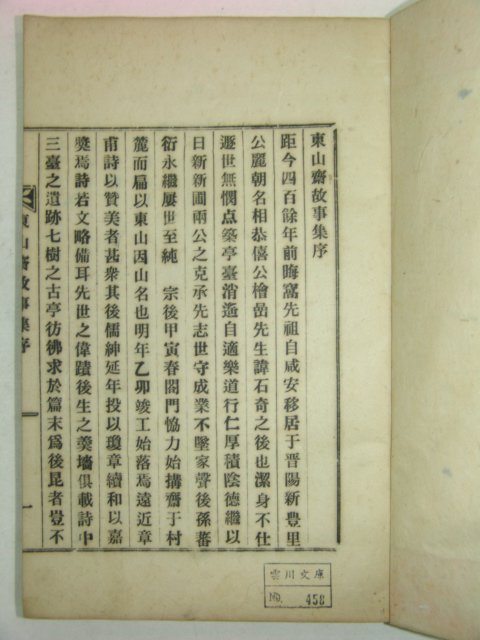 東山齋故事集序
距今四百餘年前晦窩先祖自咸安移居于晋陽新豊里
公麗朝名相恭僖公檜嵒先生諱石奇之後也潔身不仕
遯世無憫点築亭臺消遙自適樂道行仁厚積陰德繼以
日新新圃兩公之克承先志世守成業不墜家聲後孫蕃
衍永繼屢世至純 宗後甲寅春閤門恊力始搆齋于村
麓而扁以東山因山名也明年乙卯竣工始落焉遠近章
甫詩以贊美者甚衆其後儒紳延年投以瓊章續和以嘉
奬焉詩若文略備耳先世之偉蹟後生之羹墻俱載詩中
三臺之遺跡七樹之古亭彷彿求於篇末爲後昆者豈不
東山齋故事集序
一
雲川文庫
NO. 458